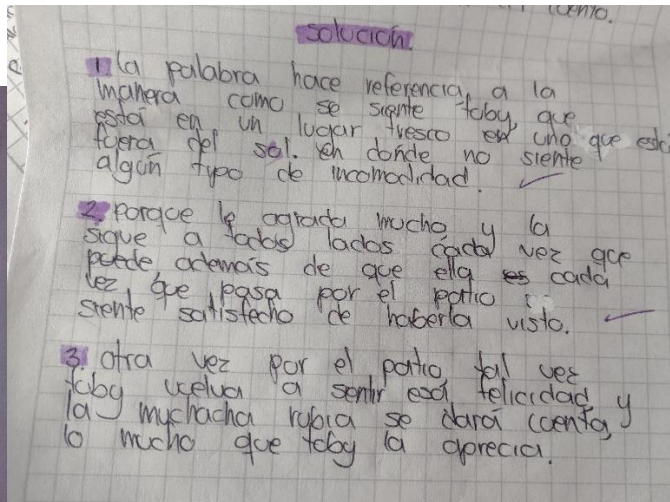 cuento.
solución.
1. la palabra hace referencia, a la
manera como se siente toby, que
está en un lugar fresco en uno que está
fuera del sol. en donde no siente
algún typo de incomodidad.
2. Porque le agrada mucho y la
sigue a todos lados cada vez que
puede, además de que ella es cada
vez, que pasa por el patio
siente satisfecho de haberla visto.
3. otra vez por el patio tal vez
toby vuelva a sentir esa felicidad y
la muchacha rubia se dará cuenta,
lo mucho que toby la aprecia.